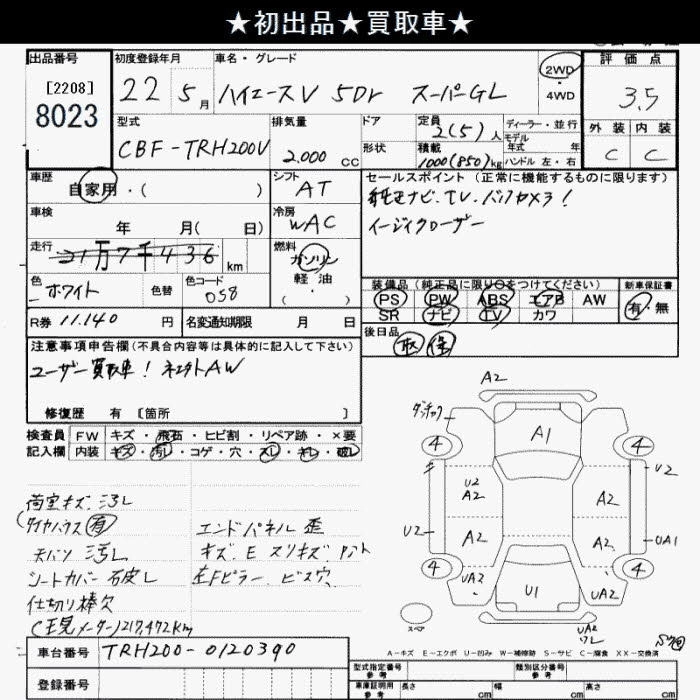 ★初出品★買取車★
出品番号 初度登録年月 車名・グレード 評価点
[2208]
8023
22 5月 ハイエースV 5Dr スーパーGL
2WD・4WD
3.5
型式 排気量 ドア 定員 ディーラー・並行
CBF-TRH200V 2,000 CC 2(5)人 モデル年式 年
形状 積載 1000(850)kg ハンドル 左・右
外装 内装
C C
車歴 自家用・( )
シフト AT
セールスポイント(正常に機能するものに限ります)
純正ナビ.TV.バックカメラ!
イージークローザー
車検 年 月( 日)
冷房 WAC
走行 21万7千436 km
燃料 ガソリン・軽油
色 ホワイト 色替 色コード 058
装備品(純正品に限り○をつけてください) 新車保証書
PS PW ABS エアB AW 有・無
SR ナビ TV カワ
R券 11.140 円 名変通知期限 月 日
後日品 取 保
注意事項申告欄(不具合内容等は具体的に記入して下さい)
ユーザー買取車!
修復歴 有 [箇所 ]
検査員 FW キズ・飛石・ヒビ割・リペア跡・×要
記入欄 内装 キズ・汚れ・コゲ・穴・スレ・キレ・破れ
荷室キズ.汚れ
タイヤハウス有
天バリ 汚れ
シートカバー 破れ
仕切り棒欠
(正規メーター)217,472km
エンドパネル 歪
キズ.E スリキズ.
左Fピラー ビス穴
A2
A1
4 4
U2 A2
A2
U2
U2
A2
A2
UA1
4 4
UA2
UA2
U1
スペア
UA2
A-キズ E-エクボ U-凹み W-補修跡 S-サビ C-腐食 XX-交換済
車台番号 TRH200-0120390
登録番号
型式指定番号 参考 類別区分番号 参考
車庫証明用 参考 長さ cm 幅 cm 高さ cm